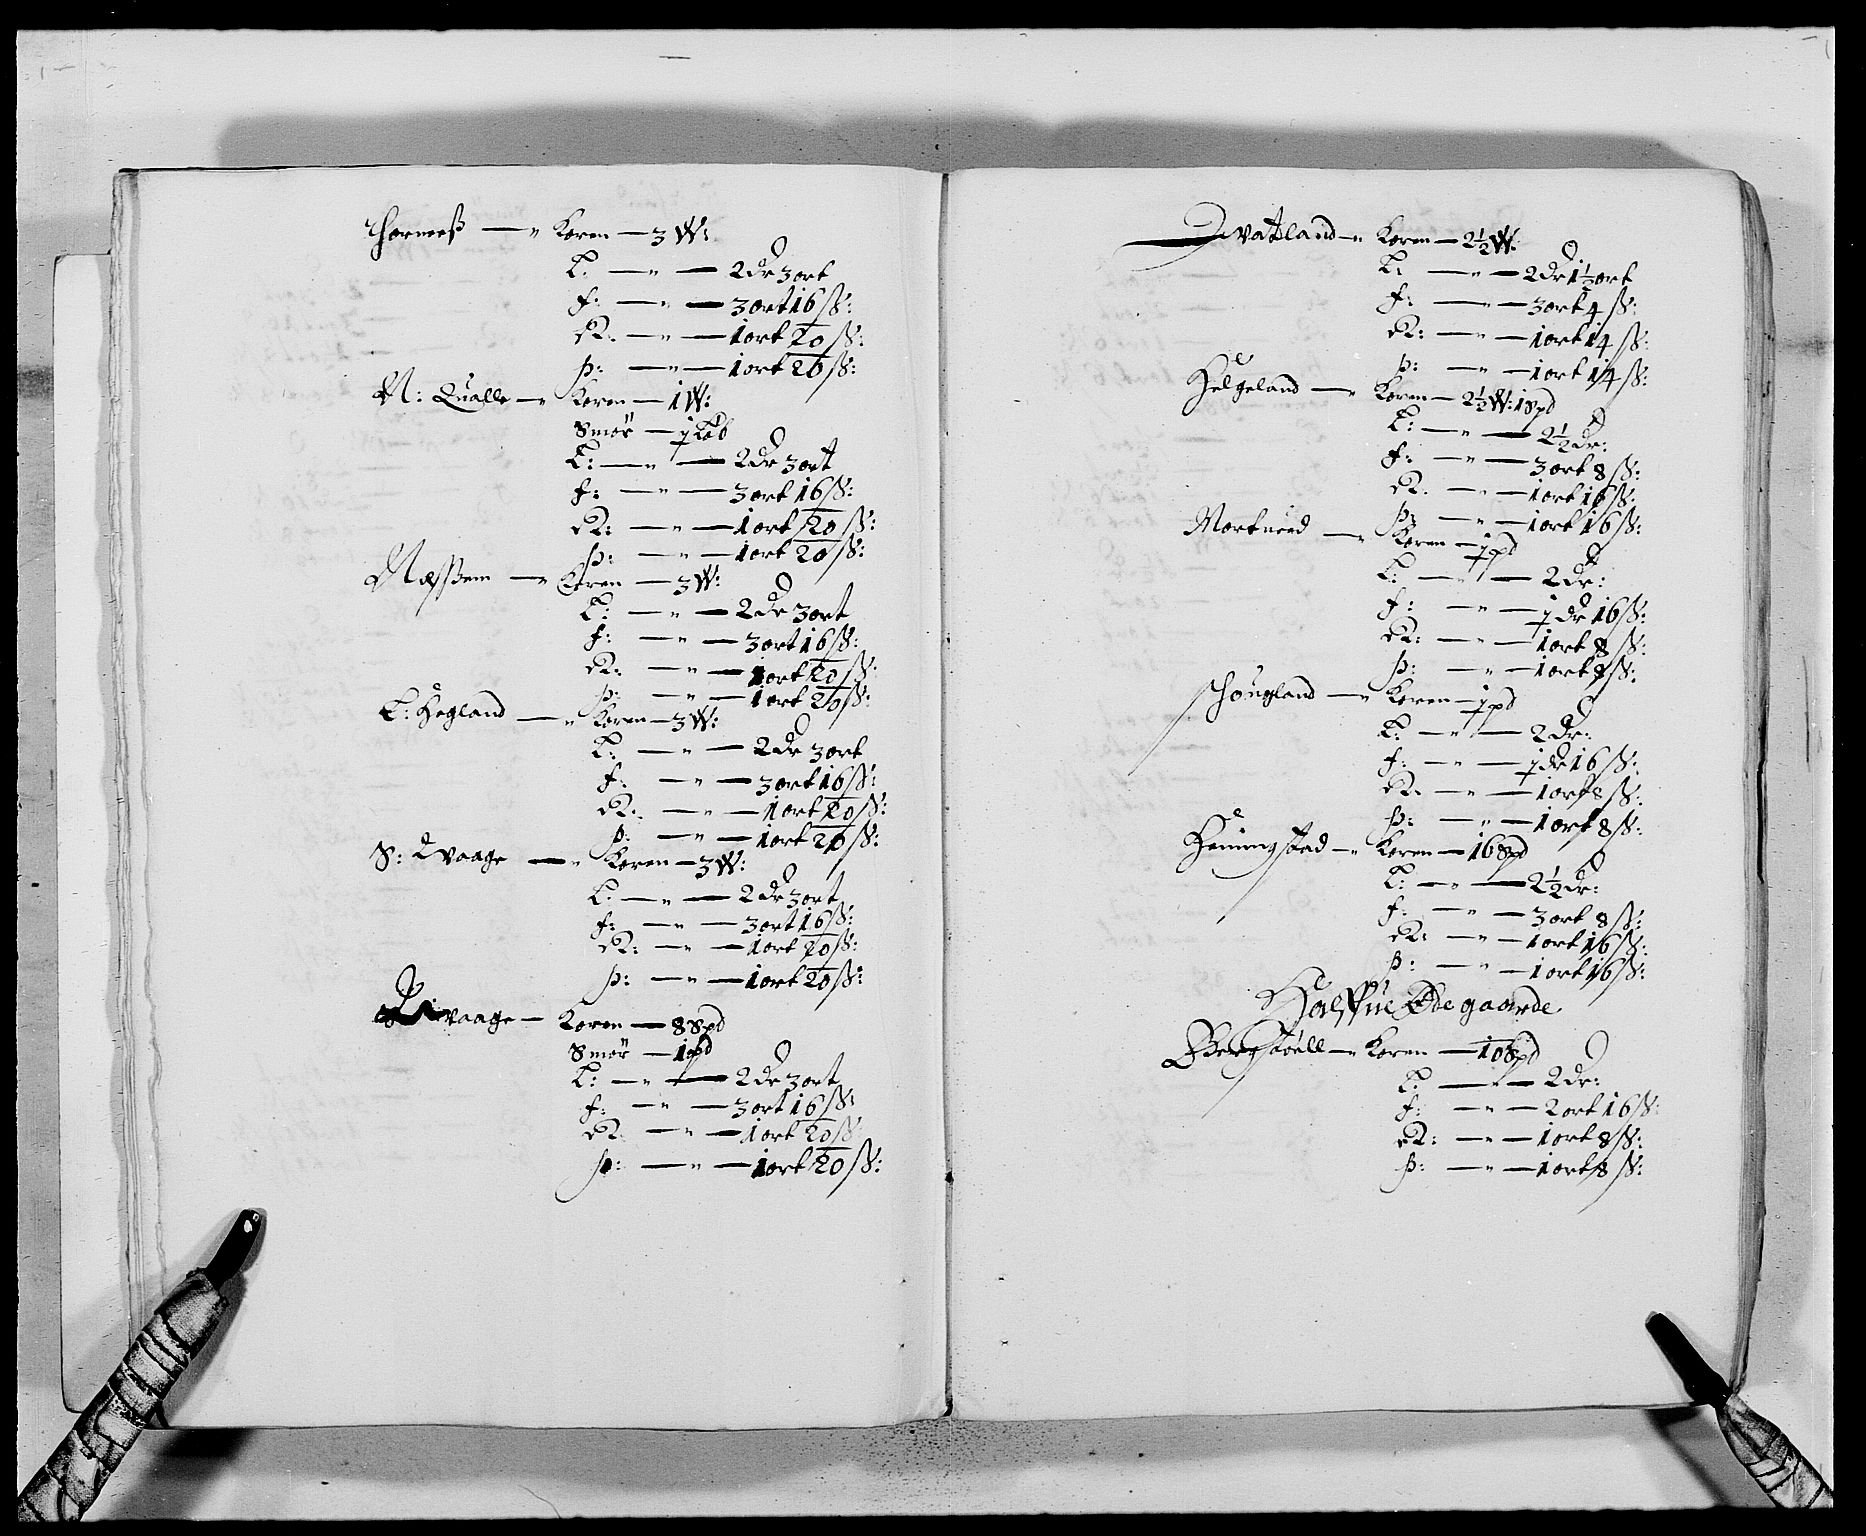 Horneeß — „ Koren — 3 W:
L: — „ — 2 dr 3 ort
f: — „ — 3 ort 16 ß:
R: — „ — 1 ort 20 ß:
þ: — „ — 1 ort 20 ß:
N: Qualle — „ Koren — 1 W:
Smör — 1 Lob
L: — „ — 2 dr 3 ort
f: — „ — 3 ort 16 ß:
R: — „ — 1 ort 20 ß:
þ: — „ — 1 ort 20 ß:
Næßem — „ Koren — 3 W:
L: — „ — 2 dr 3 ort
f: — „ — 3 ort 16 ß:
R: — „ — 1 ort 20 ß:
þ: — „ — 1 ort 20 ß:
L: Hegland — „ Koren — 3 W:
L: — „ — 2 dr 3 ort
f: — „ — 3 ort 16 ß:
R: — „ — 1 ort 20 ß:
þ: — „ — 1 ort 20 ß:
S: Waage — „ Koren — 3 W:
L: — „ — 2 dr 3 ort
f: — „ — 3 ort 16 ß:
R: — „ — 1 ort 20 ß:
þ: — „ — 1 ort 20 ß:
Waage — Koren — 8 Spd
Smör — 1 pd
L: — „ — 2 dr 3 ort
f: — „ — 3 ort 16 ß:
R: — „ — 1 ort 20 ß
þ: — „ — 1 ort 20 ß:
Qvatland — „ Koren — 2½ W:
L: — „ — 2 dr 1½ ort
f: — „ — 3 ort 4 ß:
R: — „ — 1 ort 14 ß:
þ: — „ — 1 ort 14 ß:
Helgeland — „ Koren — 2½ W: 1 Spd
L: — „ — 2½ dr:
f: — „ — 3 ort 8 ß:
R: — „ — 1 ort 16 ß:
þ: — „ — 1 ort 16 ß:
Morkneed — „ Koren — 1 pd
L: — „ — 2 dr:
f: — „ — ½ dr 16 ß:
R: — „ — 1 ort 8 ß:
þ: — „ — 1 ort 8 ß:
Hougland — „ Koren — 1 pd
L: — „ — 2 dr:
f: — „ — ½ dr 16 ß:
R: — „ — 1 ort 8 ß:
þ: — „ — 1 ort 8 ß:
Heningstad — „ Koren — 16 Spd
L: — „ — 2½ dr:
f: — „ — 3 ort 8 ß:
R: — „ — 1 ort 16 ß:
þ: — „ — 1 ort 16 ß:
Ødegaarde
Bergstöell — „ Koren — 10 Spd
L: — „ — 2 dr:
f: — „ — 2 ort 16 ß:
R: — „ — 1 ort 8 ß:
þ: — „ — 1 ort 8 ß: